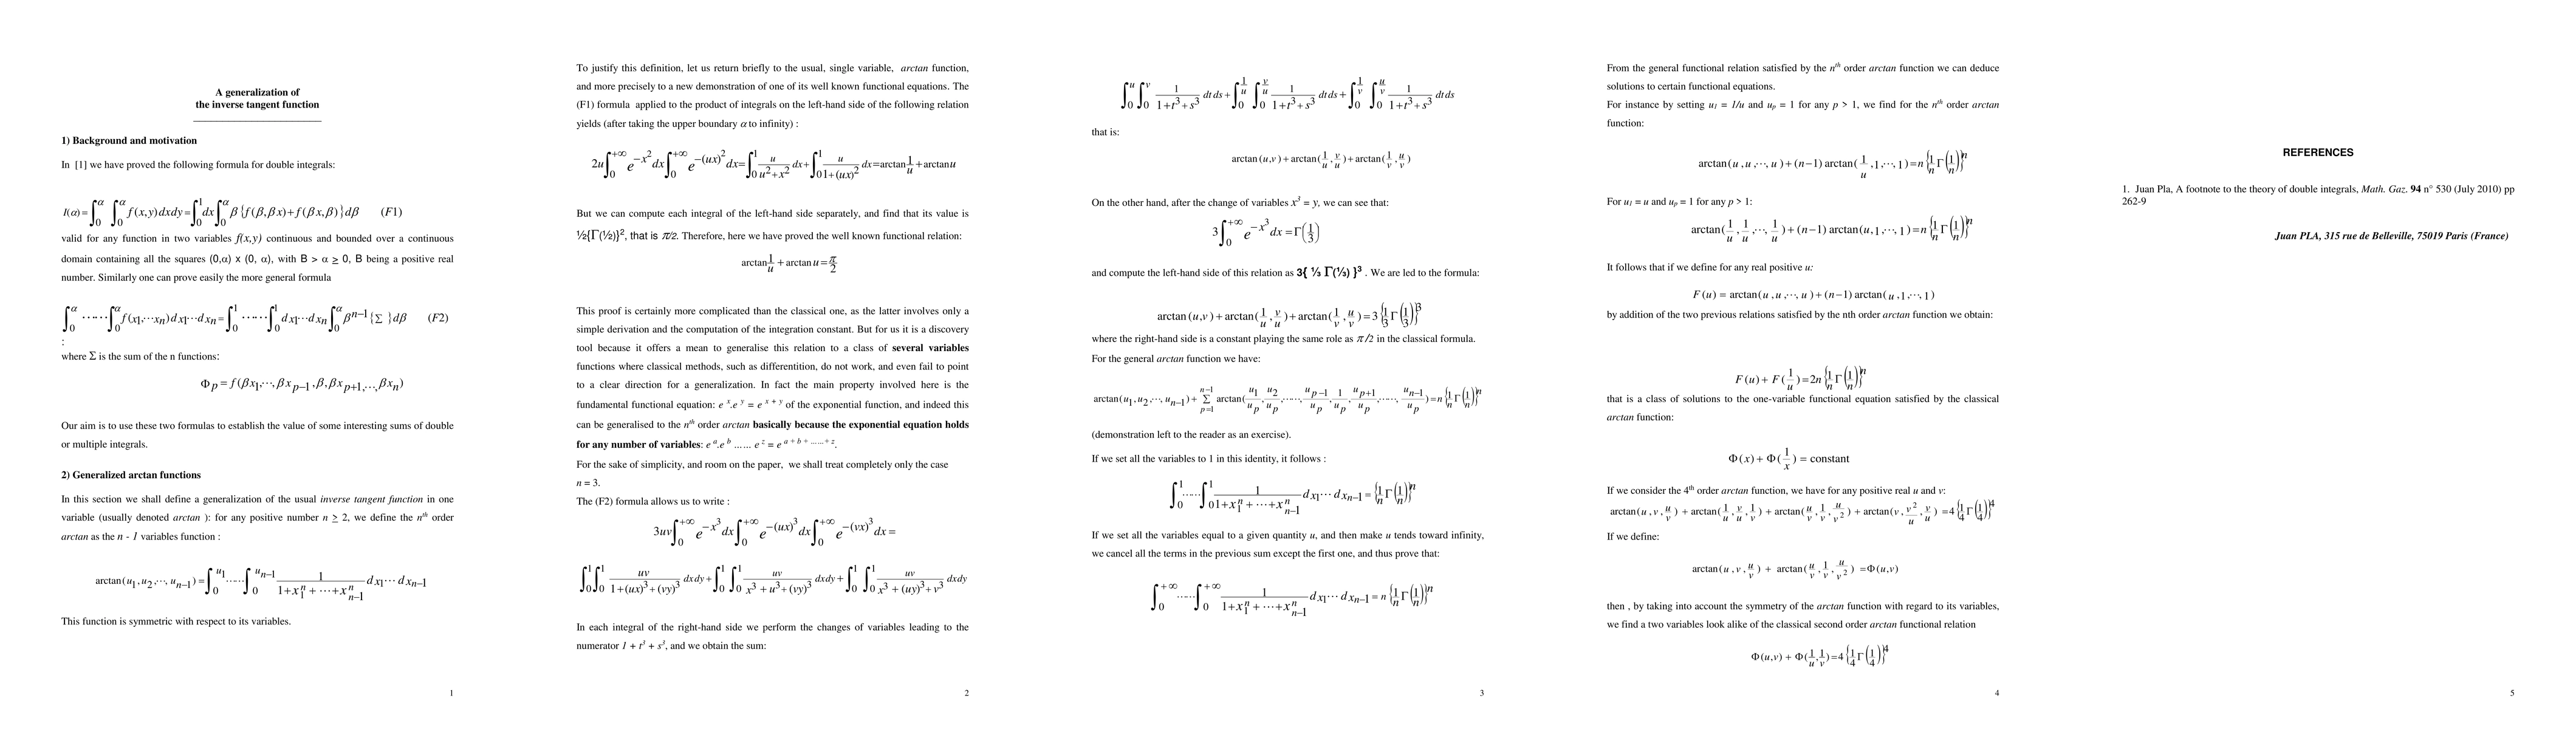 A generalization of
the inverse tangent function
1) Background and motivation
In [1] we have proved the following formula for double integrals:
I(α) = ∫_0^α ∫_0^α f(x,y) dxdy = ∫_0^1 dx ∫_0^α β {f(β,βx) + f(βx,β)} dβ (F1)
valid for any function in two variables f(x,y) continuous and bounded over a continuous
domain containing all the squares (0,α) x (0, α), with B > α ≥ 0, B being a positive real
number. Similarly one can prove easily the more general formula
∫_0^α ······ ∫_0^α f(x_1,···x_n) dx_1···dx_n = ∫_0^1 ······ ∫_0^1 dx_1···dx_n ∫_0^α β^{n−1} {Σ} dβ (F2)
:
where Σ is the sum of the n functions:
Φ_p = f(βx_1,···,βx_{p−1},β,βx_{p+1},···,βx_n)
Our aim is to use these two formulas to establish the value of some interesting sums of double
or multiple integrals.
2) Generalized arctan functions
In this section we shall define a generalization of the usual inverse tangent function in one
variable (usually denoted arctan ): for any positive number n ≥ 2, we define the n^th order
arctan as the n - 1 variables function :
arctan(u_1,u_2,···,u_{n−1}) = ∫_0^{u_1} ······ ∫_0^{u_{n−1}} 1/(1+x_1^n + ···+x_{n−1}^n) dx_1··· dx_{n−1}
This function is symmetric with respect to its variables.
1
To justify this definition, let us return briefly to the usual, single variable, arctan function,
and more precisely to a new demonstration of one of its well known functional equations. The
(F1) formula applied to the product of integrals on the left-hand side of the following relation
yields (after taking the upper boundary α to infinity) :
2u ∫_0^{+∞} e^{−x^2} dx ∫_0^{+∞} e^{−(ux)^2} dx = ∫_0^1 u/(u^2+x^2) dx + ∫_0^1 u/(1+(ux)^2) dx = arctan 1/u + arctan u
But we can compute each integral of the left-hand side separately, and find that its value is
½{Γ(½)}², that is π/2. Therefore, here we have proved the well known functional relation:
arctan 1/u + arctan u = π/2
This proof is certainly more complicated than the classical one, as the latter involves only a
simple derivation and the computation of the integration constant. But for us it is a discovery
tool because it offers a mean to generalise this relation to a class of several variables
functions where classical methods, such as differentition, do not work, and even fail to point
to a clear direction for a generalization. In fact the main property involved here is the
fundamental functional equation: e^x.e^y = e^{x + y} of the exponential function, and indeed this
can be generalised to the n^th order arctan basically because the exponential equation holds
for any number of variables: e^a.e^b ...... e^z = e^{a + b + ......+ z}.
For the sake of simplicity, and room on the paper, we shall treat completely only the case
n = 3.
The (F2) formula allows us to write :
3uv ∫_0^{+∞} e^{−x^3} dx ∫_0^{+∞} e^{−(ux)^3} dx ∫_0^{+∞} e^{−(vx)^3} dx =
∫_0^1 ∫_0^1 uv/(1+(ux)^3+(vy)^3) dxdy + ∫_0^1 ∫_0^1 uv/(x^3+u^3+(vy)^3) dxdy + ∫_0^1 ∫_0^1 uv/(x^3+(uy)^3+v^3) dxdy
In each integral of the right-hand side we perform the changes of variables leading to the
numerator 1 + t^3 + s^3, and we obtain the sum:
2
∫_0^u ∫_0^v 1/(1+t^3+s^3) dt ds + ∫_0^{1/u} ∫_0^{v/u} 1/(1+t^3+s^3) dt ds + ∫_0^{1/v} ∫_0^{u/v} 1/(1+t^3+s^3) dt ds
that is:
arctan(u,v) + arctan(1/u, v/u) + arctan(1/v, u/v)
On the other hand, after the change of variables x^3 = y, we can see that:
3 ∫_0^{+∞} e^{−x^3} dx = Γ(1/3)
and compute the left-hand side of this relation as 3{ ⅓ Γ(⅓) }³ . We are led to the formula:
arctan(u,v) + arctan(1/u, v/u) + arctan(1/v, u/v) = 3 {1/3 Γ(1/3)}^3
where the right-hand side is a constant playing the same role as π/2 in the classical formula.
For the general arctan function we have:
arctan(u_1,u_2,···,u_{n−1}) + Σ_{p=1}^{n−1} arctan(u_1/u_p, u_2/u_p,······, u_{p−1}/u_p, 1/u_p, u_{p+1}/u_p,······, u_{n−1}/u_p) = n {1/n Γ(1/n)}^n
(demonstration left to the reader as an exercise).
If we set all the variables to 1 in this identity, it follows :
∫_0^1 ······ ∫_0^1 1/(1+x_1^n + ···+x_{n−1}^n) dx_1··· dx_{n−1} = {1/n Γ(1/n)}^n
If we set all the variables equal to a given quantity u, and then make u tends toward infinity,
we cancel all the terms in the previous sum except the first one, and thus prove that:
∫_0^{+∞} ······ ∫_0^{+∞} 1/(1+x_1^n + ···+x_{n−1}^n) dx_1··· dx_{n−1} = n {1/n Γ(1/n)}^n
3
From the general functional relation satisfied by the n^th order arctan function we can deduce
solutions to certain functional equations.
For instance by setting u_1 = 1/u and u_p = 1 for any p > 1, we find for the n^th order arctan
function:
arctan(u,u,···,u) + (n−1) arctan(1/u,1,···,1) = n {1/n Γ(1/n)}^n
For u_1 = u and u_p = 1 for any p > 1:
arctan(1/u, 1/u,···, 1/u) + (n−1) arctan(u,1,···,1) = n {1/n Γ(1/n)}^n
It follows that if we define for any real positive u:
F(u) = arctan(u,u,···,u) + (n−1) arctan(u,1,···,1)
by addition of the two previous relations satisfied by the nth order arctan function we obtain:
F(u) + F(1/u) = 2n {1/n Γ(1/n)}^n
that is a class of solutions to the one-variable functional equation satisfied by the classical
arctan function:
Φ(x) + Φ(1/x) = constant
If we consider the 4^th order arctan function, we have for any positive real u and v:
arctan(u,v,u/v) + arctan(1/u, v/u, 1/v) + arctan(u/v, 1/v, u/v^2) + arctan(v, v^2/u, v/u) = 4 {1/4 Γ(1/4)}^4
If we define:
arctan(u,v,u/v) + arctan(u/v, 1/v, u/v^2) = Φ(u,v)
then , by taking into account the symmetry of the arctan function with regard to its variables,
we find a two variables look alike of the classical second order arctan functional relation
Φ(u,v) + Φ(1/u, 1/v) = 4 {1/4 Γ(1/4)}^4
4
REFERENCES
1. Juan Pla, A footnote to the theory of double integrals, Math. Gaz. 94 n° 530 (July 2010) pp
262-9
Juan PLA, 315 rue de Belleville, 75019 Paris (France)
5